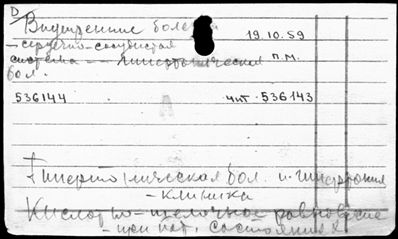 D
Внутренние болезни 19.10.59
— сердечно-сосудистая
система — гипертоническая п.м.
бол.
536144 чит. 536143
Гипертоническая бол. и гипертония
— клиника
Кислотно-щелочное равновесие
— при пат. состояниях